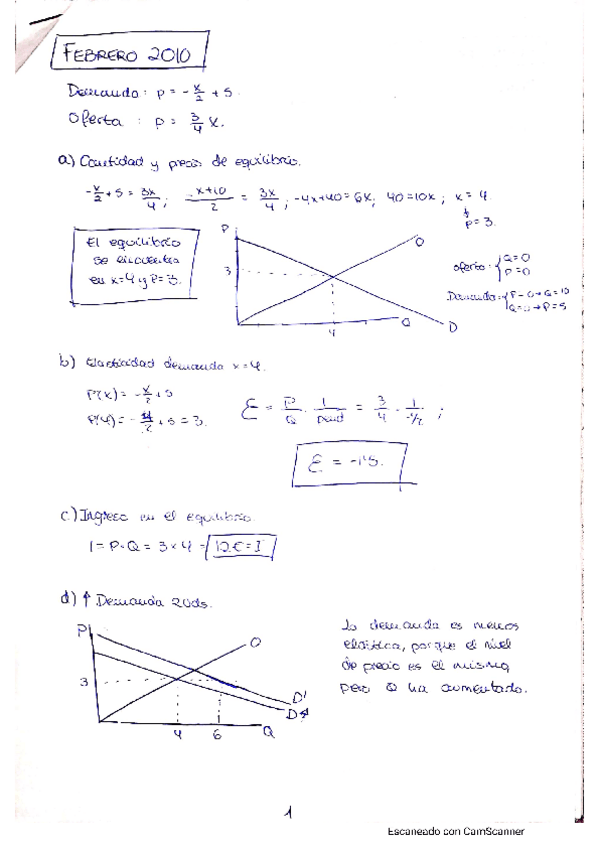 FEBRERO 2010
Demanda: p = -x/2 + 5.
Oferta : p = 3/4 x.
a) Cantidad y precio de equilibrio.
-x/2 + 5 = 3x/4 ; -x+10/2 = 3x/4 ; -4x+40=6x; 40=10x; x=4.
↓
p=3.
El equilibrio
se encuentra
en x=4 y P=3.
P
O
3
4
Q
D
Oferta: { Q=0
P=0
Demanda: { P=0→Q=10
Q=0→P=5
b) Elasticidad demanda x=4.
P(x) = -x/2 + 5
P(4) = -4/2 + 5 = 3.
ε = P/Q · 1/pend = 3/4 · 1/-1/2 ;
ε = -1'5.
c) Ingreso en el equilibrio.
I = P·Q = 3×4 = 12€=I
d) ↑ Demanda 2Uds.
P
O
3
D'
D
4
6
Q
La demanda es menos
elástica, porque el nivel
de precio es el mismo
pero Q ha aumentado.
1
Escaneado con CamScanner